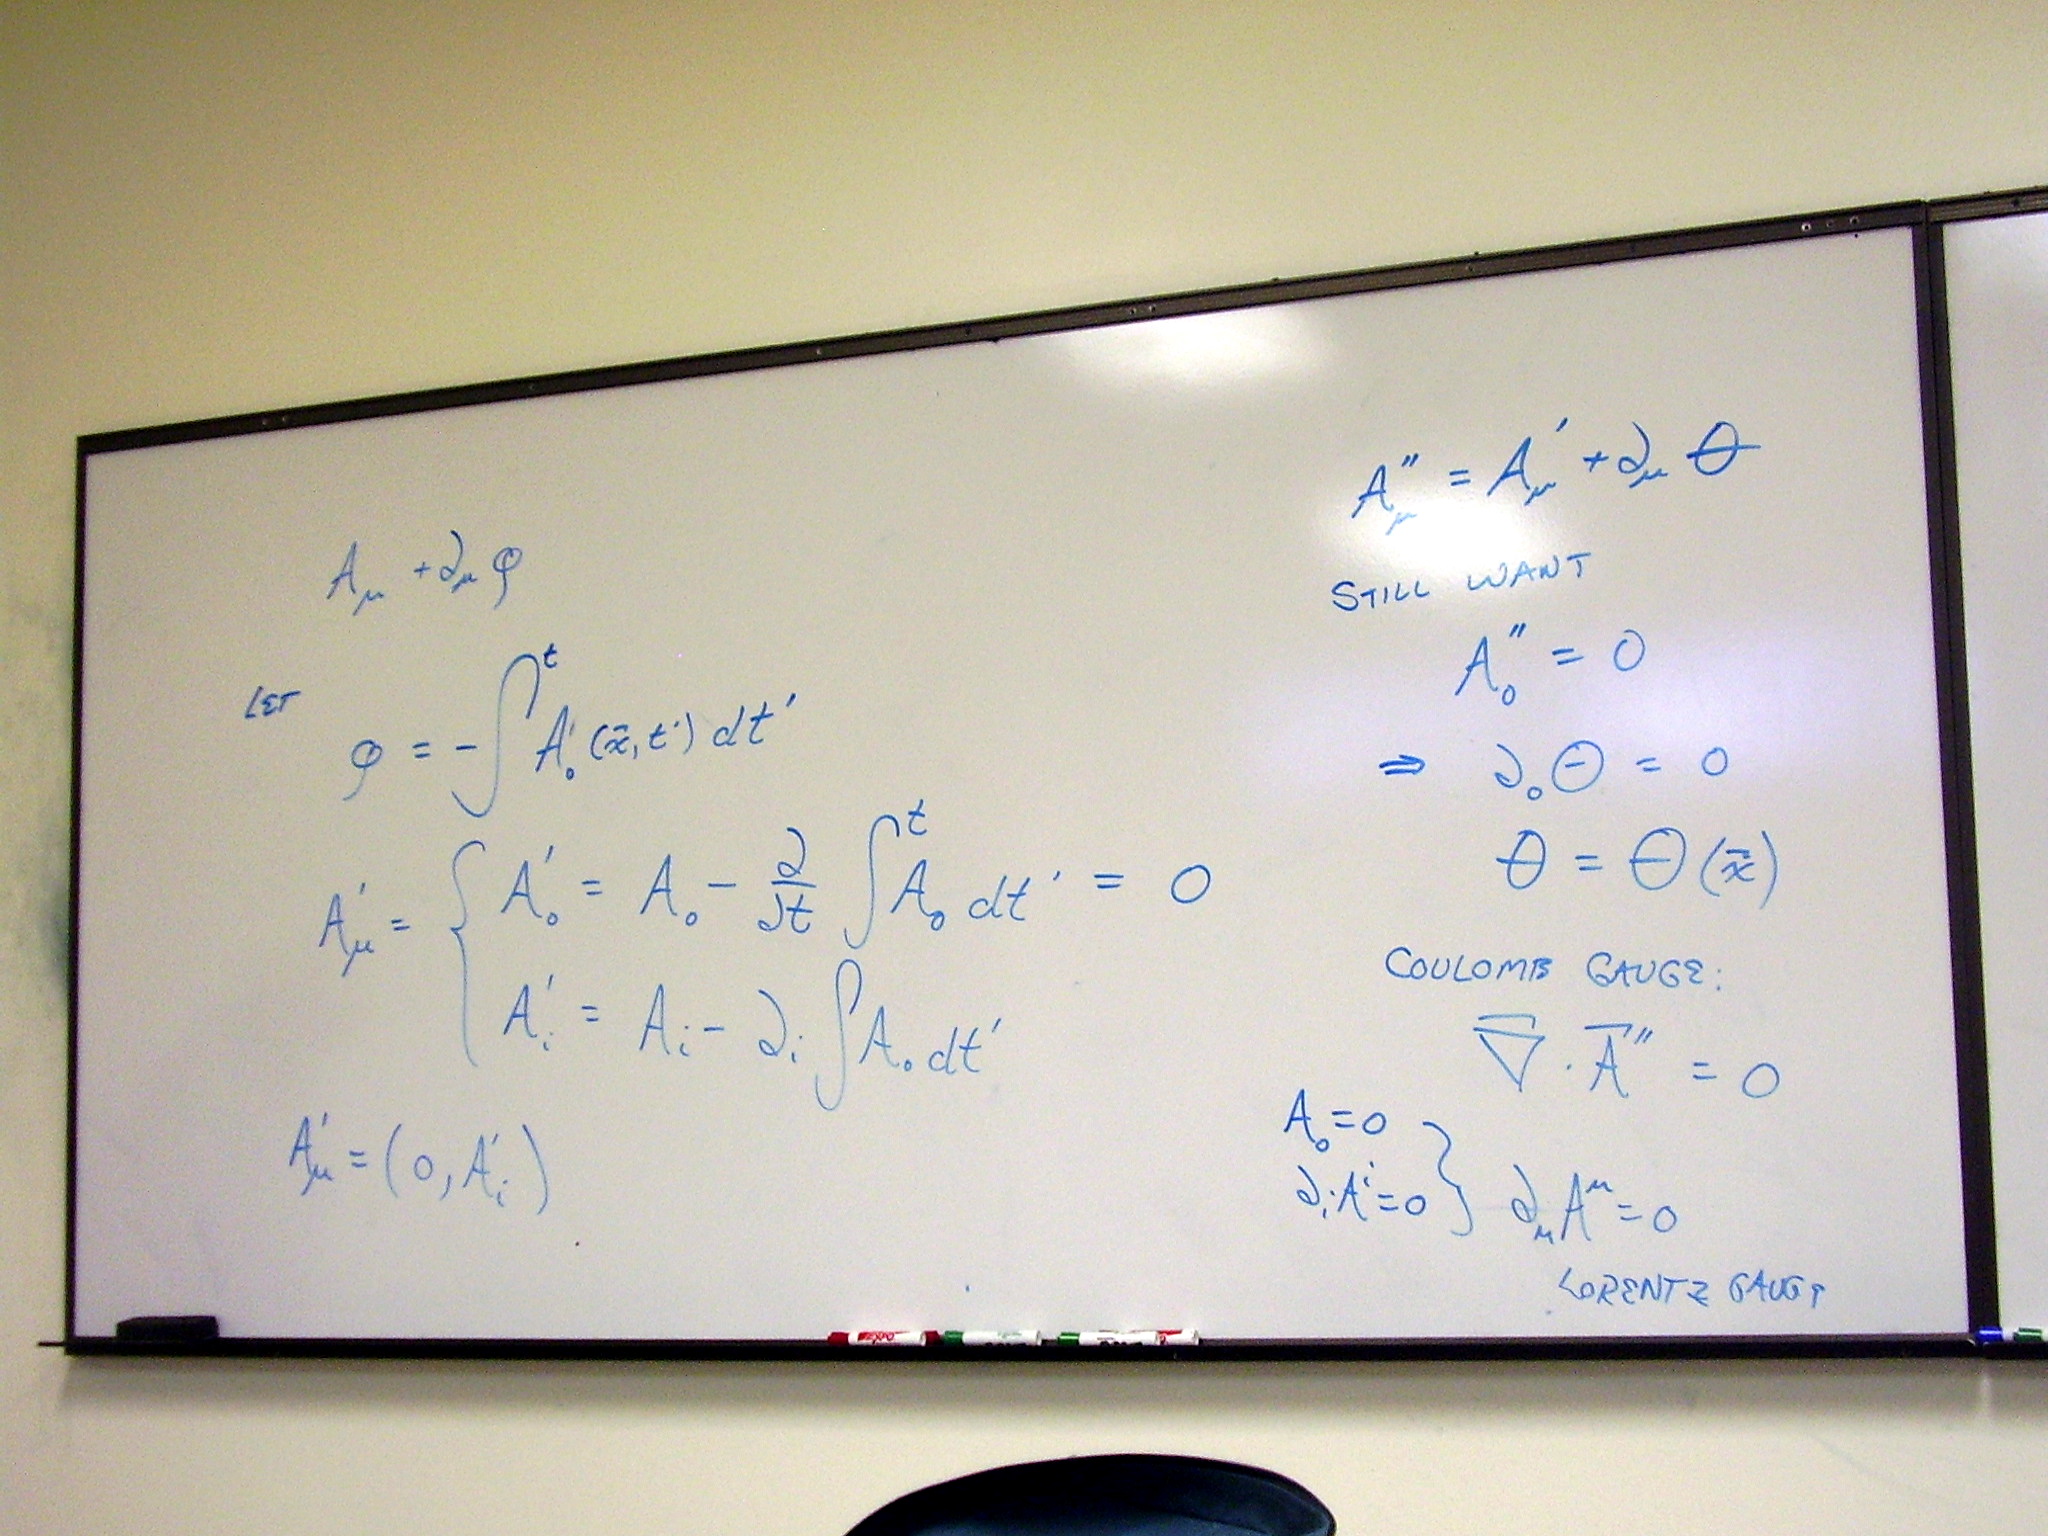 A_μ + ∂_μ φ
LET
φ = -∫^t A'_0 (x̄, t') dt'
A'_μ = { A'_0 = A_0 - ∂/∂t ∫^t A_0 dt' = 0
A'_i = A_i - ∂_i ∫ A_0 dt'
A'_μ = (0, A'_i)
A''_μ = A'_μ + ∂_μ Θ
STILL WANT
A''_0 = 0
⇒ ∂_0 Θ = 0
Θ = Θ(x̄)
COULOMB GAUGE:
∇̄ · A̅'' = 0
A_0 = 0
∂_i A^i = 0 } ∂_μ A^μ = 0
LORENTZ GAUGE